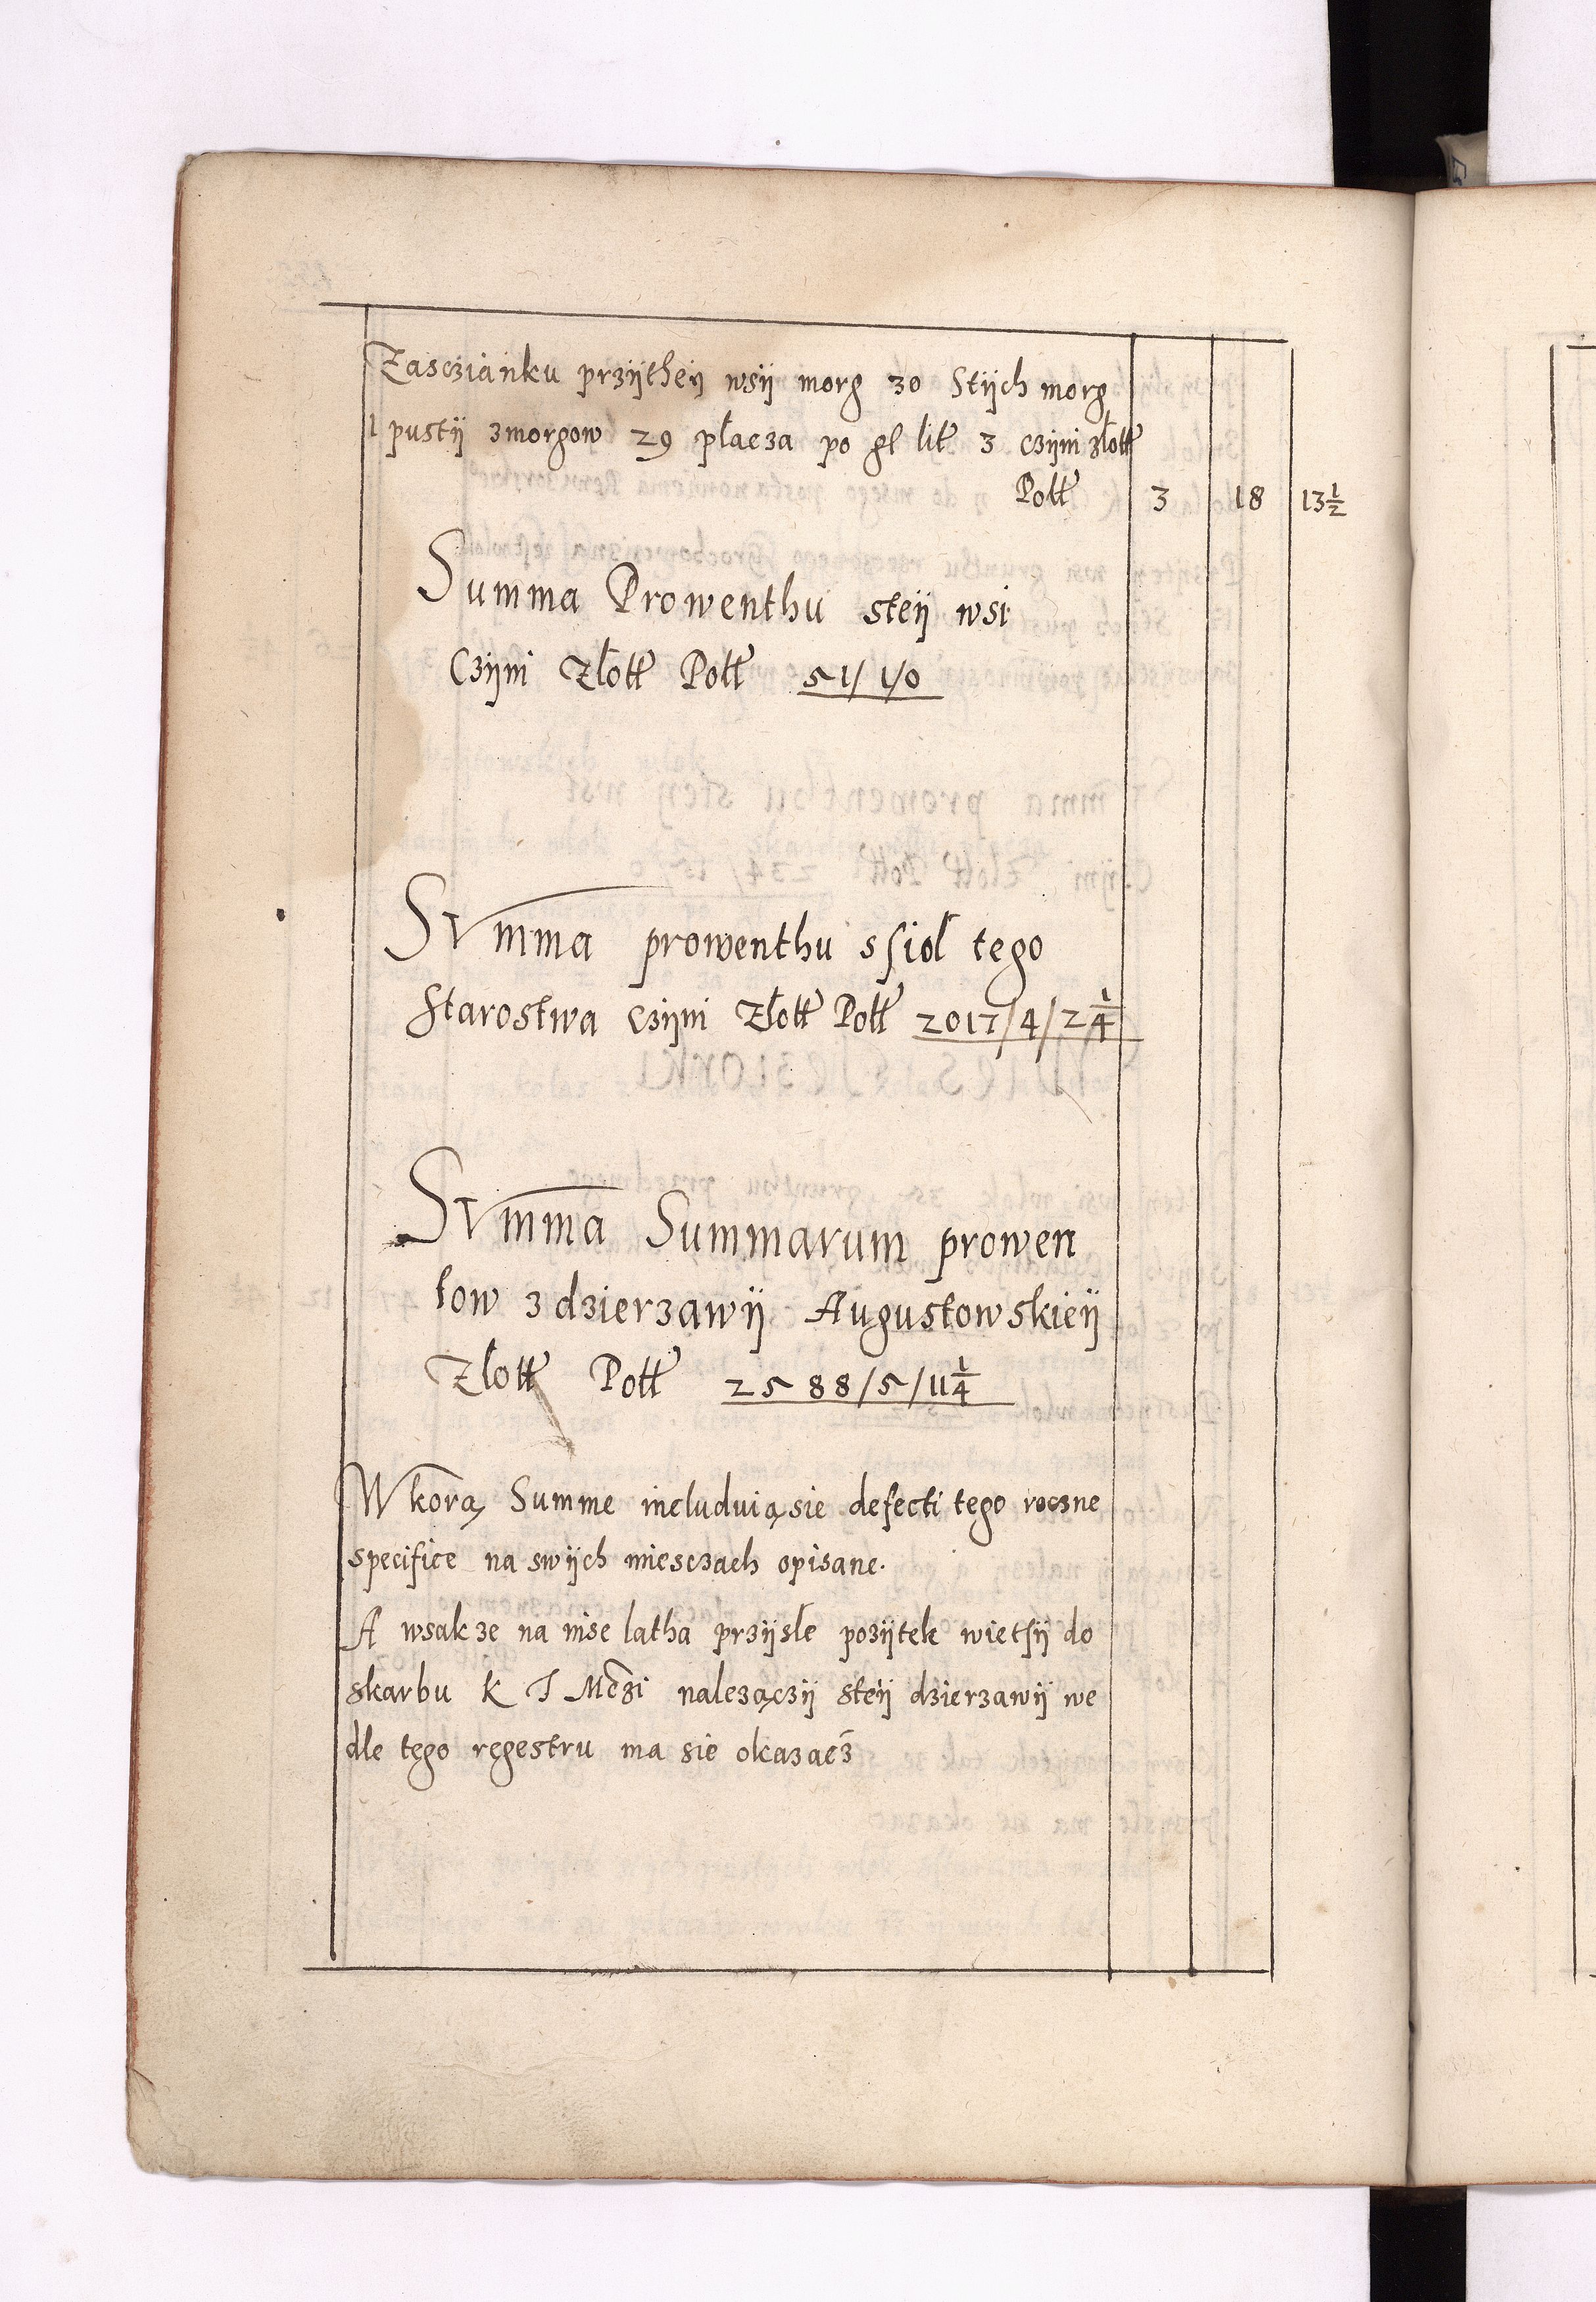 Zasczianku przÿtheÿ wsÿ morg 30 Stÿch morg
1 pustÿ zmorgow 29 płacza po gł lit 3 czÿni złott
Poll 3 18 13½
Summa Prowenthu steÿ wsi
Czÿni Złott Poll 51/ 1/0
Summa prowenthu s sioł tego
Starostwa czÿni Złott Poll 2017/4/2¼
Summa Summarum prowen
tow z dzierzawÿ Augustowskieÿ
Złott Poll 2588/5/11¼
W kora Summe includuią sie defecti tego roczne
specifice na swÿch miesczach opisane.
A wsakze na inse latha przÿsłe pozÿtek wietsÿ do
skarbu K J Mczi nalezączÿ steÿ dzierzawÿ we
dle tego regestru ma sie okazacz